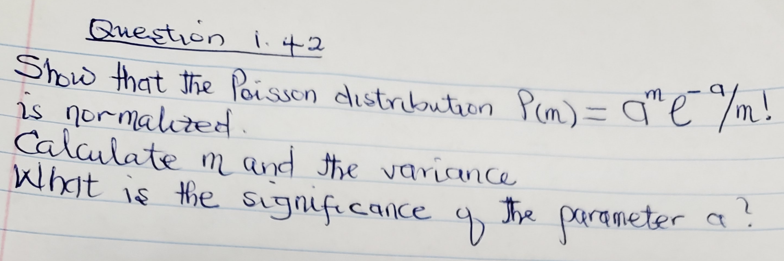 Question 1.42
Show that the Poisson distribution P(m) = a^m e^-a/m!
is normalized.
Calculate m and the variance
What is the significance of the parameter a?